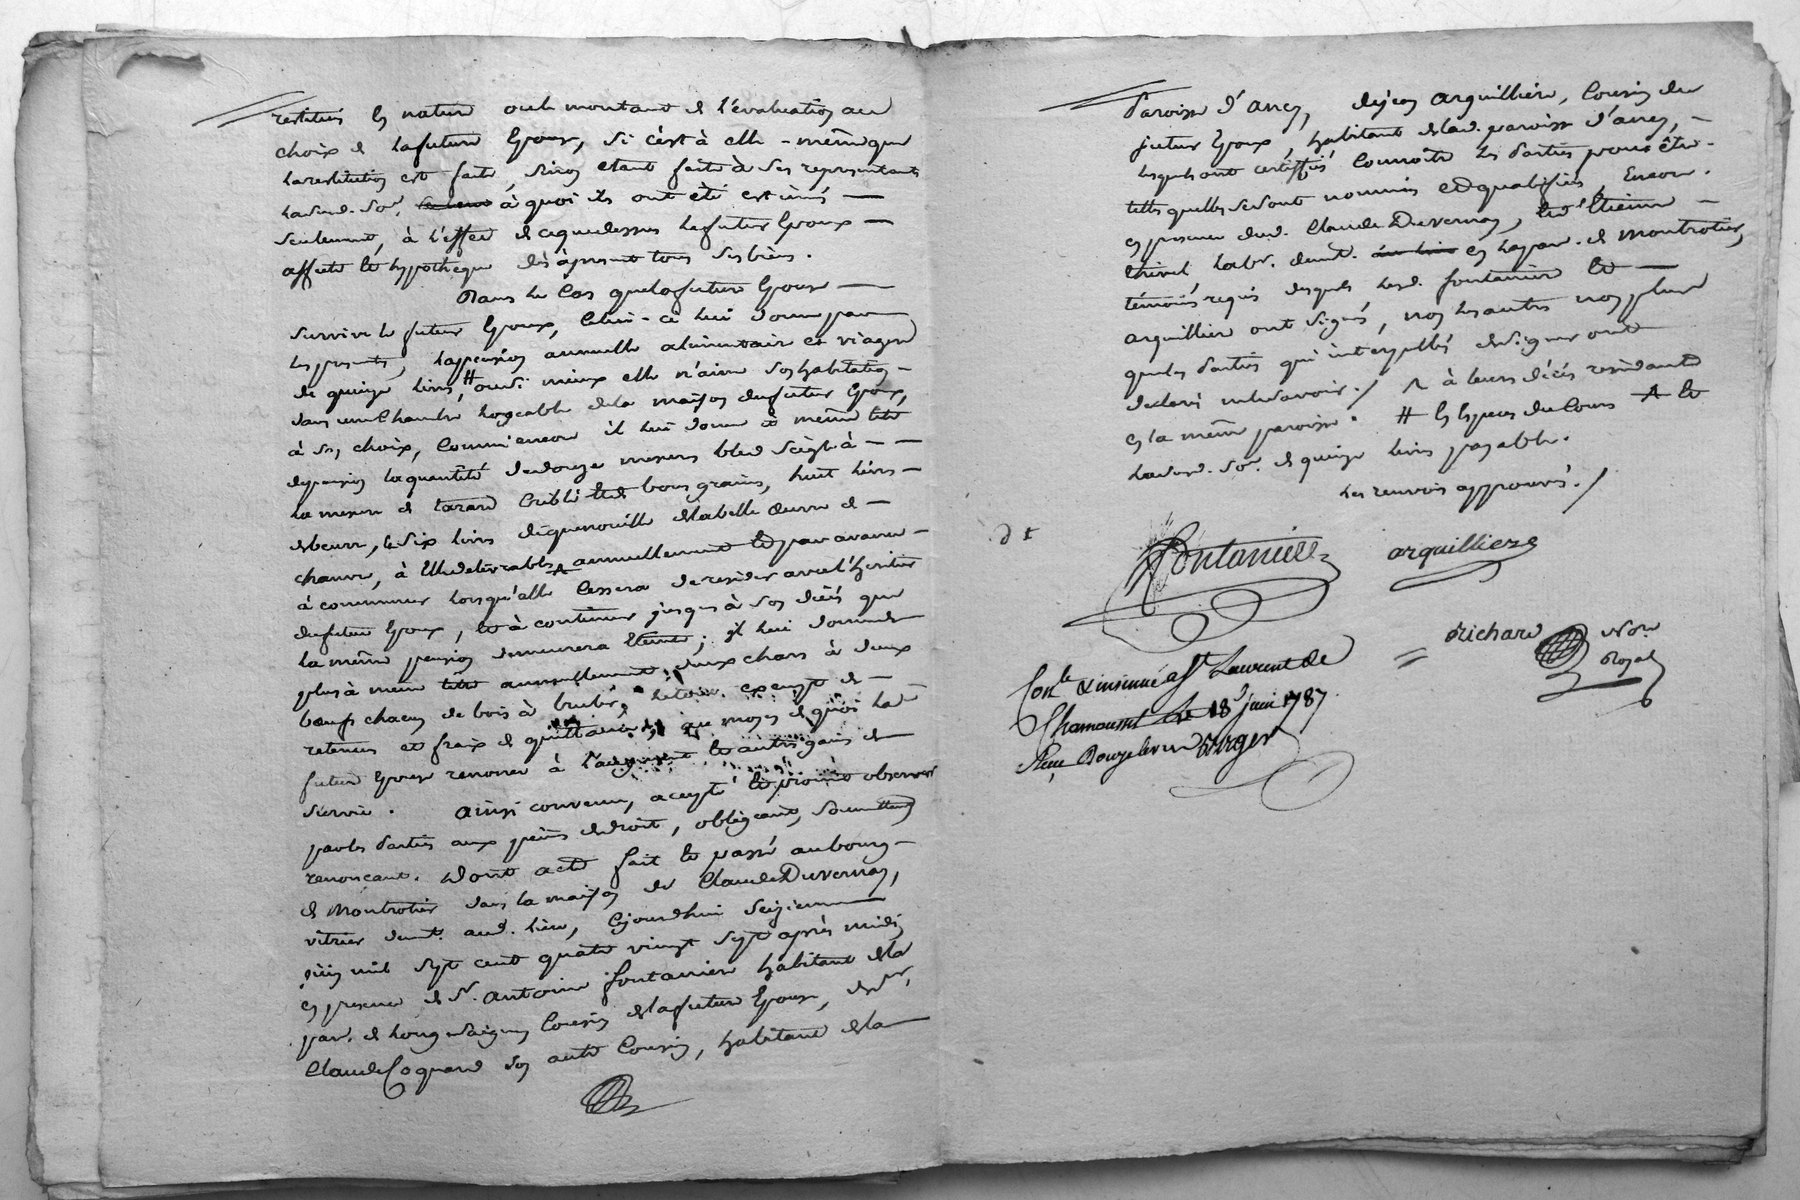 restitués en nature ou le montant de l'évaluation au
choix de la future Epouse, si c'est à elle-même que
la restitution est faite, sinon étant faite à ses représentants
à quoi ils ont été estimés
seulement, à l'effet de ce que dessus le futur Epoux
affecte et hypothèque dès à présent tous ses biens.
Dans le Cas que la future Epouse
survive le futur Epoux, Celui-ci lui donne par
les présentes, la pension annuelle alimentaire et viagere
de quinze livres, # ou si mieux elle n'aime son habitation
dans une Chambre logeable de la maison du futur Epoux,
à son choix, Comm' encore il lui donne et même
pension la quantité de douze mesures bled seigle à
la mesure de tarare Criblé bons grains, huit livres
de beurre, & six livres de quenouille de la belle œuvre de
chanvre, à Elle delivrables annuellement et par avance
à commencer lorsqu'elle Cessera de resider avec l'heritier
du futur Epoux, et à continuer jusques à son décès que
la même pension demeurera Eteinte; il lui donne de
plus à même titre annuellement deux chars à deux
bœufs chacun de bois à bruler, le tout exempt de
retenues et fraix de quittance, au moyen de quoi la
future Epouse renonce à l'augment et autres gains de
survie. Ainsi convenu, accepté et promis observer
par les Parties aux peines de droit, obligeant, soumettant
renonçant. Dont acte fait et passé au bourg
de Montrotier dans la maison de Claude Duvernay,
vitrier demt. aud. lieu, Cejourdhui seizieme
juin mil sept cent quatre vingt sept après midi
en presence de Sr. Antoine fontaniere habitant de la
par. de longessaigne Cousin de la future Epouse, de Sr.
Claude Coquard son autre Cousin, habitant de la
Paroisse d'ancy, arquilliere, Cousin du
futur Epoux, habitant de lad. paroisse d'ancy,
lesquels ont certiffié Connoitre les Parties pour être
telles quelles se sont nommées et qualifiées, Encore
en presence dud. Claude Duvernay, et d'Etienne
labr. demt. en la par. de Montrotier,
témoins requis desquels led. fontaniere et
arquilliere ont signés, non les autres non plus
que les Parties qui interpellés de signer ont
declaré ne le savoir ./ à leurs décès residants
en la même paroisse. # En Especes du Cours et
de quinze livres payable.
les renvois approuvés ./
Fontaniere arquilliere
Richard Nore
Royal
Con.le & insinué à St Laurent de
Chamousset le 18 juin 1787